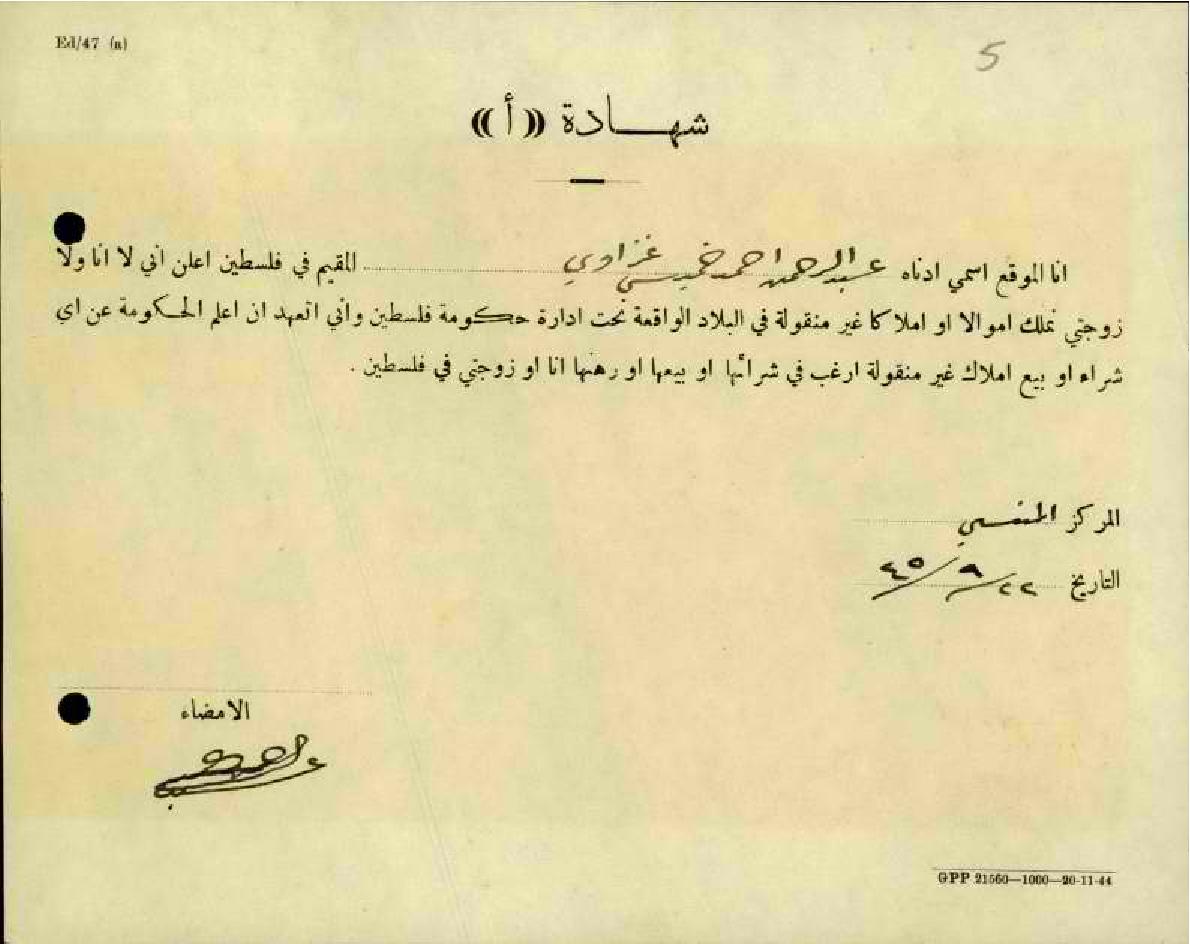 Ed/47 (a)
5
شهـــادة ((أ))
انا الموقع اسمي ادناه عبد الرحمن احمد خميس غزاوي المقيم في فلسطين اعلن اني لا انا ولا
زوجتي نملك اموالا او املاكا غير منقولة في البلاد الواقعة تحت ادارة حكومة فلسطين واني اتعهد ان اعلم الحكومة عن اي
شراء او بيع املاك غير منقولة ارغب في شرائها او بيعها او رهنها انا او زوجتي في فلسطين .
المركز
التاريخ ٢٢/٩/٤٥
الامضاء
GPP 21560—1000—20-11-44